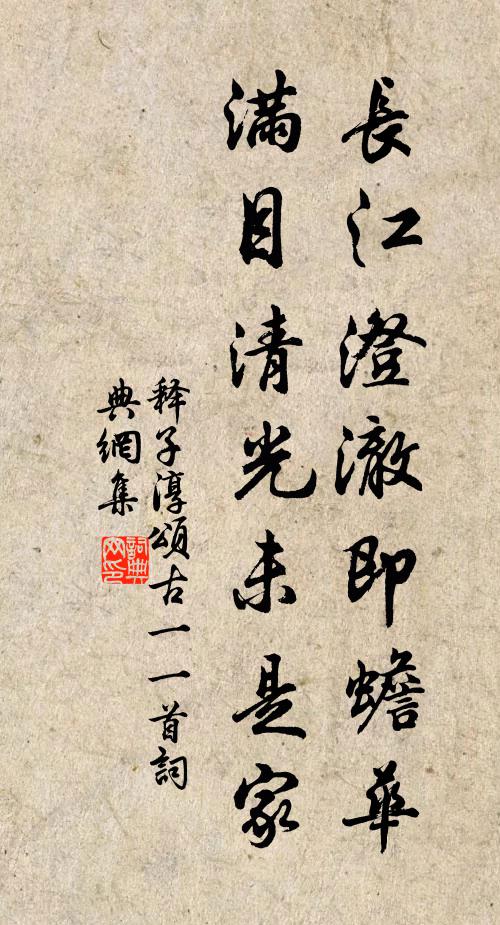 長江澄澈即蟾華
滿目清光未是家
释子淳頌古一一首詞
典網集
詞典網印